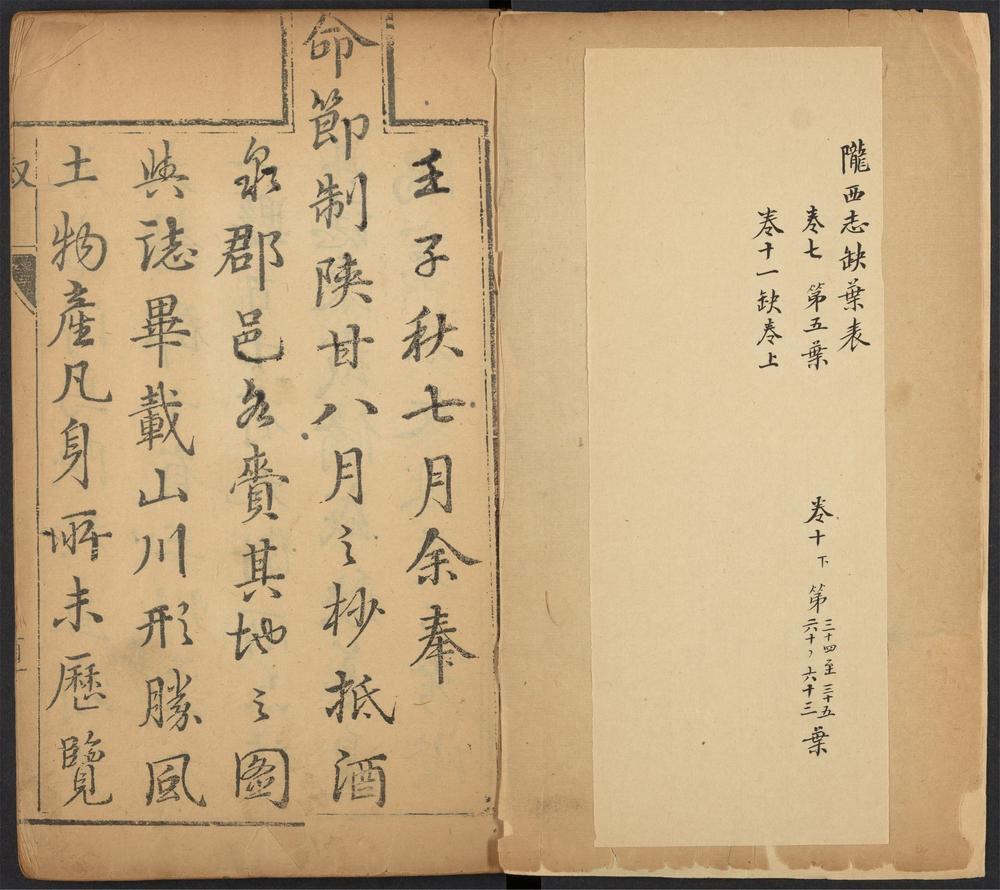 隴西志缺葉表
卷七 第五葉
卷十下 第三十四至三十五 六十、六十三葉
卷十一缺卷上
壬子秋七月余奉
命節制陝甘八月之杪抵酒
泉郡邑各賫其地之图
輿誌畢載山川形勝風
土物產凡身所未歷覽